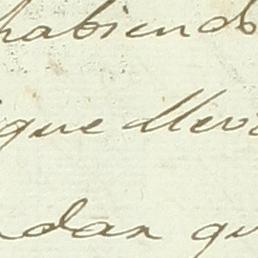 habiendo
que lleva
dan qu